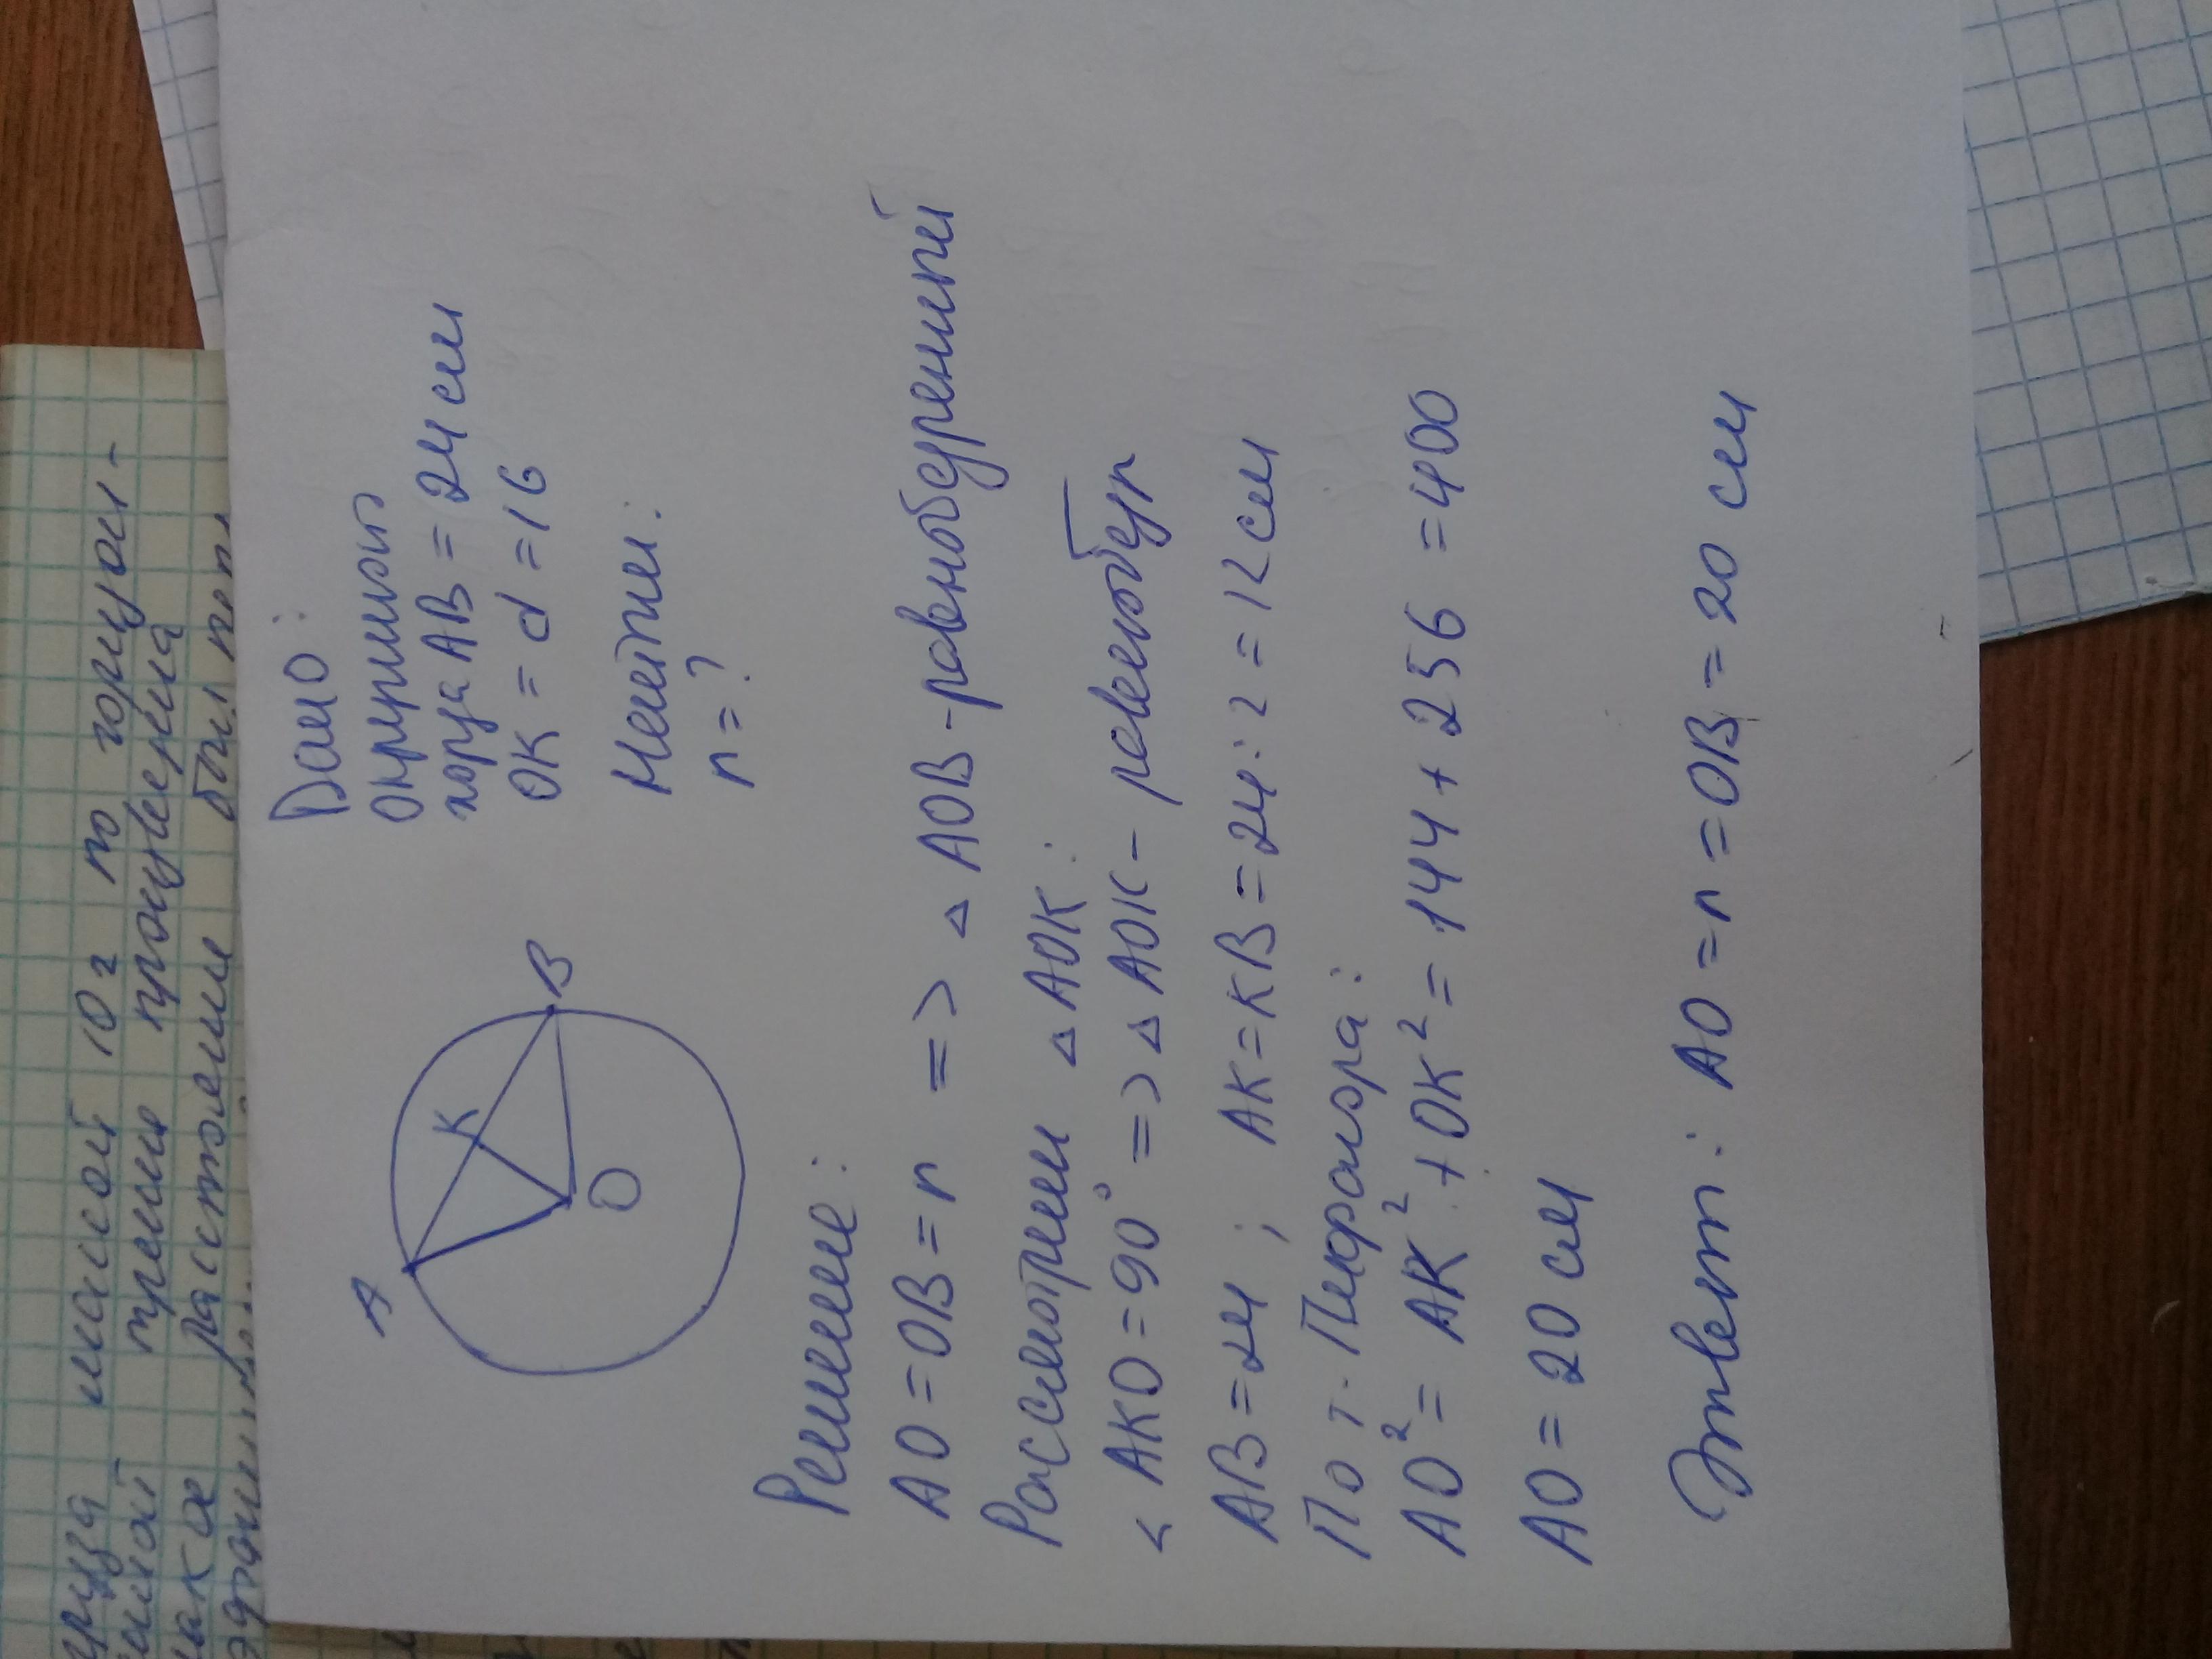 A
K
B
O
Дано:
окружность
хорда AB = 24 см
OK = d = 16
Найти:
r = ?
Решение:
AO = OB = r => △ AOB - равнобедренный
Рассмотрим △ AOK:
∠ AKO = 90° => △ AOK -
AB = 24 ; AK = KB = 24 : 2 = 12 см
По т. Пифагора:
AO² = AK² + OK² = 144 + 256 = 400
AO = 20 см
Ответ: AO = r = OB = 20 см
массой 10 г по
трении
расстояние был